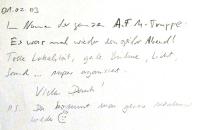 01.02.03
Im Namen der ganzen A.F.M.-Truppe:
Es war mal wieder ein geiler Abend!
Tolle Lokalität, gute Bühne, Licht,
Sound... super organisiert.
Viele Dank!
P.S. Da kommt man gerne